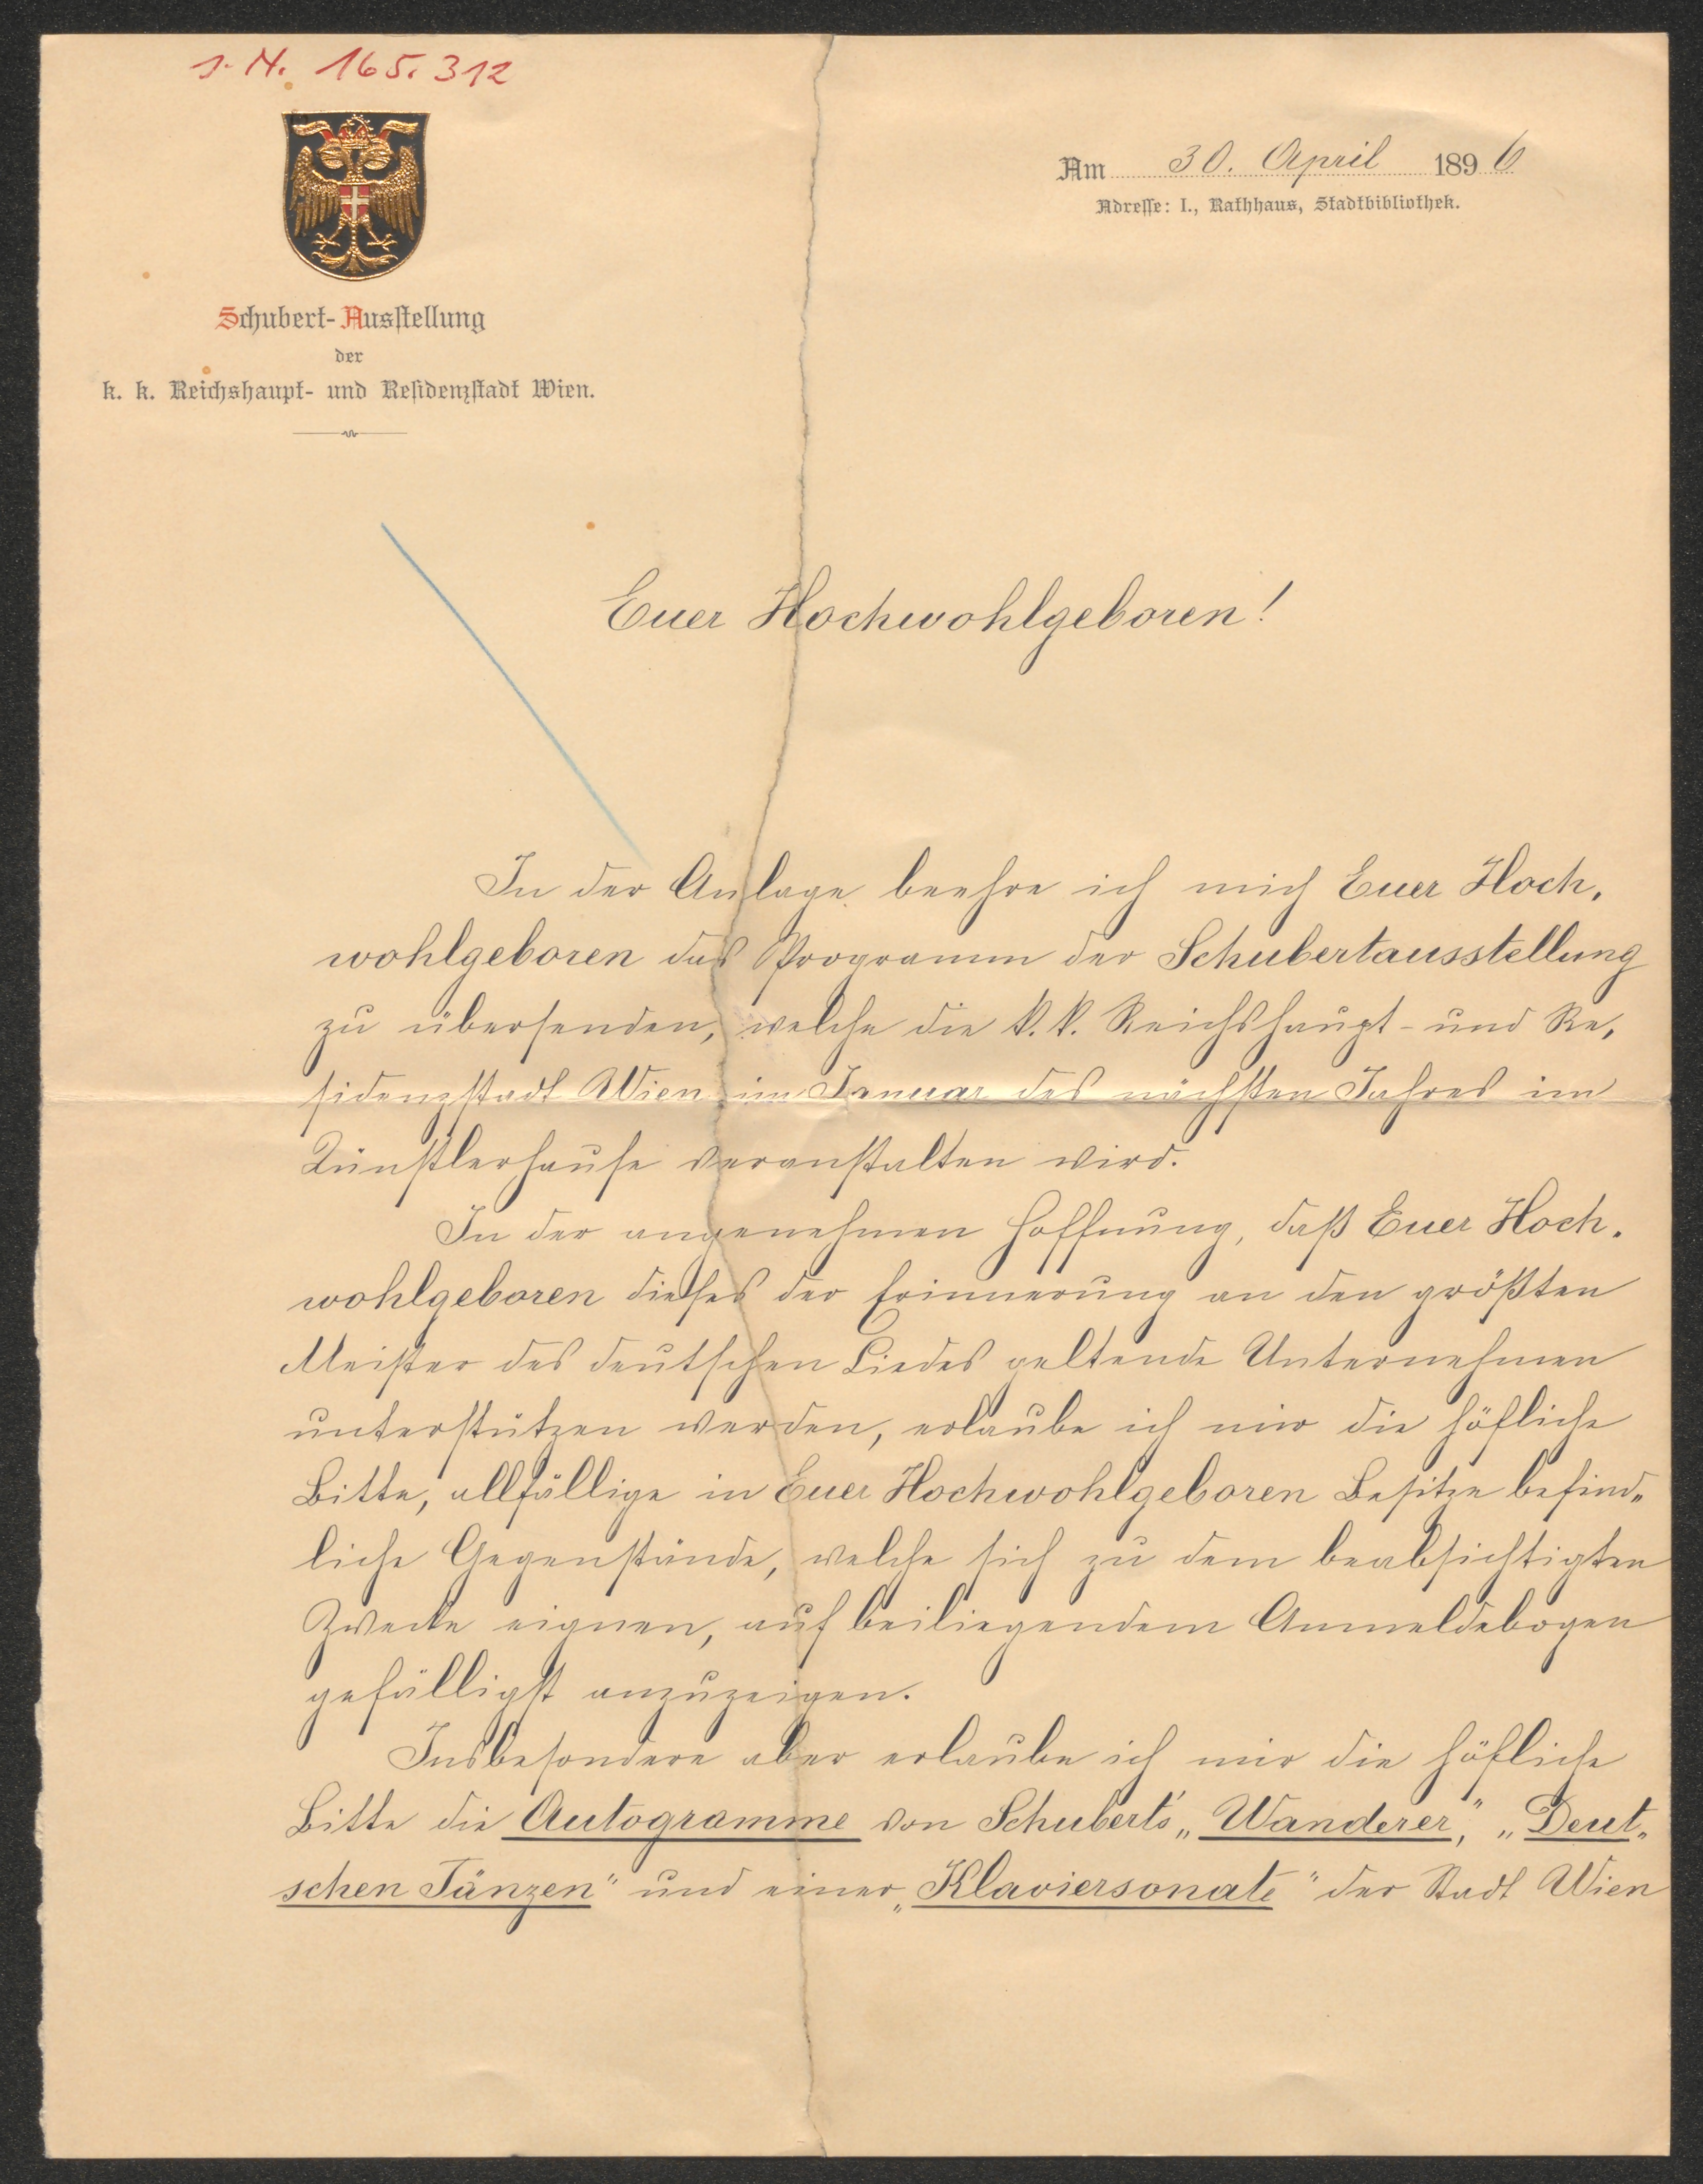 J. N. 165.312
Am 30. April 1896
Adresse: I., Rathhaus, Stadtbibliothek.
Schubert-Ausstellung
der
k. k. Reichshaupt- und Residenzstadt Wien.
Euer Hochwohlgeboren!
In der Anlage beehre ich mich Euer Hoch,
wohlgeboren das Programm der Schubertausstellung
zu übersenden, welche die k. k. Reichshaupt- und Re,
sidenzstadt Wien im Januar des nächsten Jahres im
Künstlerhause veranstalten wird.
In der angenehmen Hoffnung, daß Euer Hoch,
wohlgeboren dieses der Erinnerung an den größten
Meister des deutschen Liedes geltende Unternehmen
unterstützen werden, erlaube ich mir die höfliche
Bitte, allfällige in Euer Hochwohlgeboren Besitze befind„
liche Gegenstände, welche sich zu dem beabsichtigten
Zwecke eignen, auf beiliegendem Anmeldebogen
gefälligst anzuzeigen.
Insbesondere aber erlaube ich mir die höfliche
Bitte die Autogramme von Schubert's „Wanderer," „Deut„
schen Tänzen" und einer „Klaviersonate" der Stadt Wien